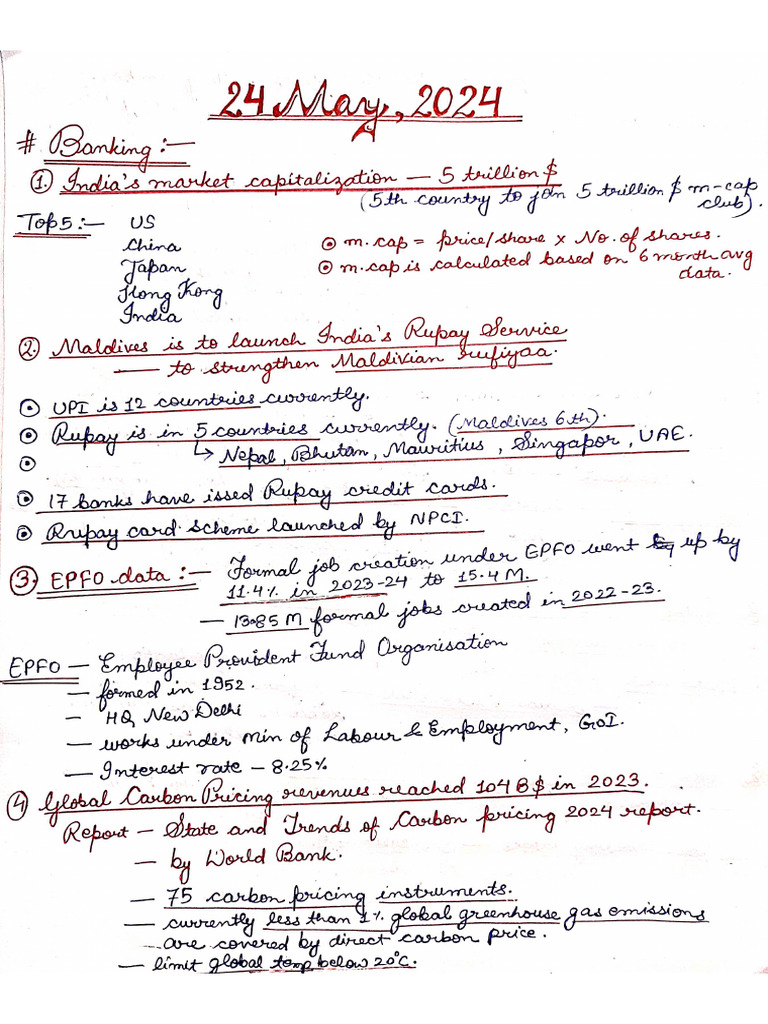 24 May, 2024
# Banking :-
①. India's market capitalization — 5 trillion $
(5th country to join 5 trillion $ m-cap
club).
Top 5 :- US
China
Japan
Hong Kong
India
⊙ m.cap = price/share x No. of shares.
⊙ m.cap is calculated based on 6 month avg
data.
②. Maldives is to launch India's Rupay Service
— to strengthen Maldivian rufiyaa.
⊙ UPI is 12 countries currently.
⊙ Rupay is in 5 countries currently. (Maldives 6th).
⊙ ↳ Nepal, Bhutan, Mauritius, Singapor, UAE.
⊙ 17 banks have issed Rupay credit cards.
⊙ Rrupay card scheme launched by NPCI.
③. EPFO data :- Formal job creation under EPFO went up by
11.4% in 2023-24 to 15.4 M.
— 13.85 M formal jobs created in 2022-23.
EPFO — Employee Provident Fund Organisation
— formed in 1952.
— HQ New Delhi
— works under Min of Labour & Employment, GoI.
— Interest rate — 8.25%
④ Global Carbon Pricing revenues reached 104 B$ in 2023.
Report — State and Trends of Carbon pricing 2024 report.
— by World Bank.
— 75 carbon pricing instruments.
— currently less than 1% global greenhouse gas emissions
are covered by direct carbon price.
— limit global temp below 20°C.